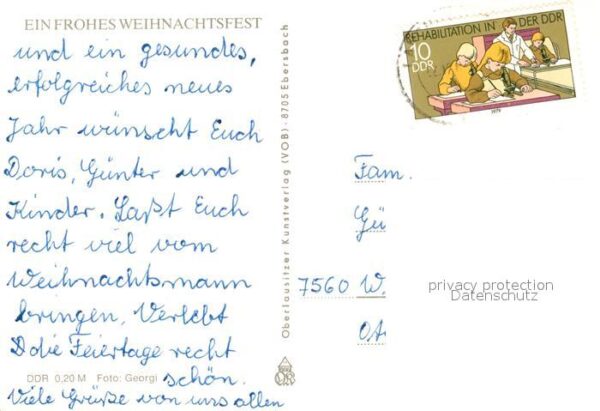 EIN FROHES WEIHNACHTSFEST
und ein gesundes,
erfolgreiches neues
Jahr wünscht Euch
Doris, Günter und
Kinder. Laßt Euch
recht viel vom
Weihnachtsmann
bringen. Verlebt
die Feiertage recht
schön.
Viele Grüße von uns allen
DDR 0,20 M Foto: Georgi
Oberlausitzer Kunstverlag (VOB) · 8705 Ebersbach
REHABILITATION IN DER DDR
10
DDR
1979
Fam.
Gü
7560 W.
Ot
privacy protection
Datenschutz